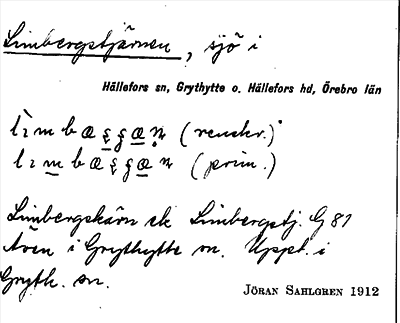 Limbergstjärnen, sjö i
Hällefors sn, Grythytte o. Hällefors hd, Örebro län
(renskr.)
(prim.)
Limbergskärn ek Limbergstj. G 81
Även i Grythytte sn. Uppt. i
Gryth. sn.
JÖRAN SAHLGREN 1912